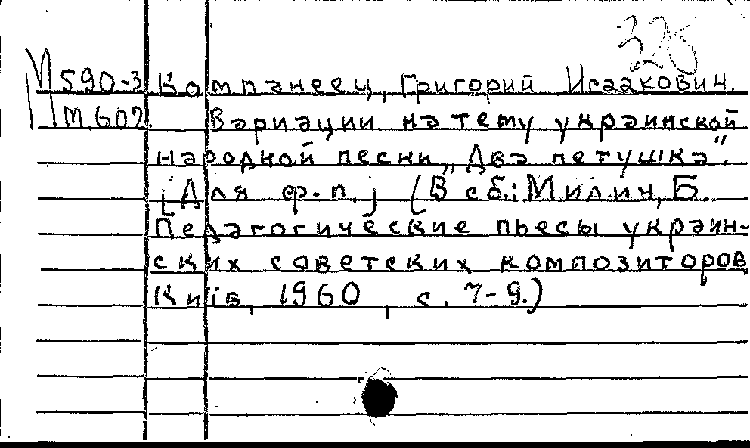 325
М590-3 Компанеец, Григорий Исаакович
М.602 Вариации на тему украинской
народной песни „Два петушка".
[Для ф.-п.] (В сб.: Милич, Б.
Педагогические пьесы украин-
ских советских композиторов
Київ, 1960, с. 7-9.)